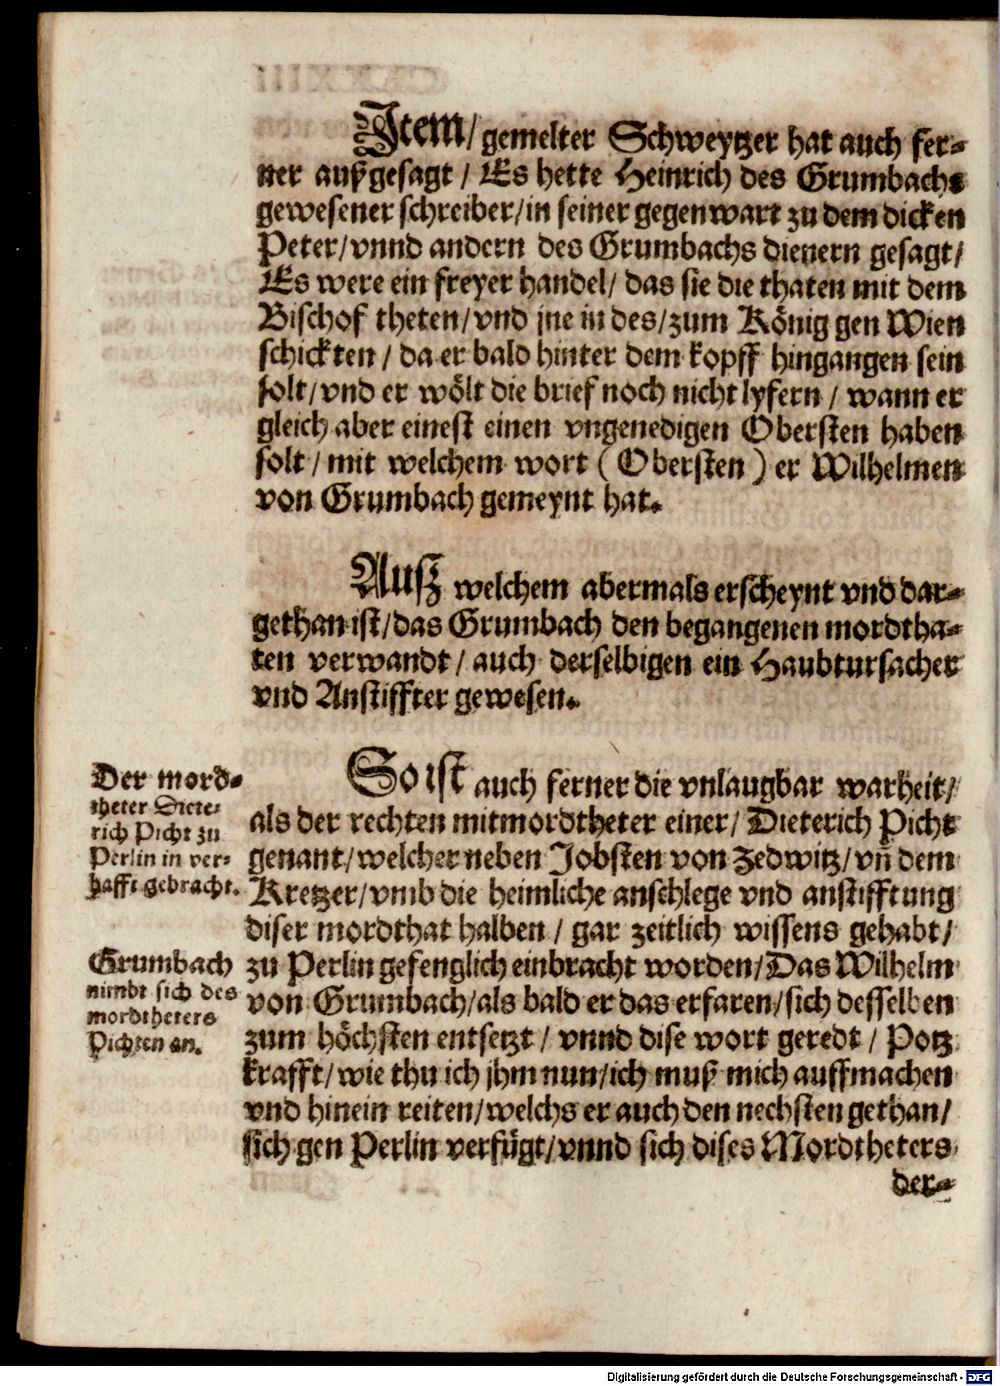 Item/ gemelter Schweytzer hat auch fer-
ner außgesagt / Es hette Heinrich des Grumbachs
gewesener schreiber/in seiner gegenwart zu dem dicken
Peter/vnnd andern des Grumbachs dienern gesagt/
Es were ein freyer handel/ das sie die thaten mit dem
Bischof theten/vnd jne in des/zum König gen Wien
schickten / da er bald hinter dem kopff hingangen sein
solt/vnd er wölt die brief noch nicht lyfern / wann er
gleich aber einest einen vngenedigen Obersten haben
solt / mit welchem wort ( Obersten ) er Wilhelmen
von Grumbach gemeynt hat.
Ausz welchem abermals erscheynt vnd dar-
gethan ist/das Grumbach den begangenen mordtha-
ten verwandt / auch derselbigen ein Haubtursacher
vnd Anstiffter gewesen.
So ist auch ferner die vnlaugbar warheit/
als der rechten mitmordtheter einer/ Dieterich Picht
genant/welcher neben Jobsten von Zedwitz/vñ dem
Kretzer/vmb die heimliche anschlege vnd anstifftung
diser mordthat halben / gar zeitlich wissens gehabt/
zu Perlin gefenglich einbracht worden/Das Wilhelm
von Grumbach/als bald er das erfaren/sich desselben
zum höchsten entsetzt / vnnd dise wort geredt / Potz
krafft/wie thu ich jhm nun/ich muß mich auffmachen
vnd hinein reiten/welchs er auch den nechsten gethan/
sich gen Perlin verfügt/vnnd sich dises Mordtheters
der-
Der mord-
theter Diete-
rich Picht zu
Perlin in ver-
hafft gebracht.
Grumbach
nimbt sich des
mordtheters
Pichten an.
Digitalisierung gefördert durch die Deutsche Forschungsgemeinschaft - DFG